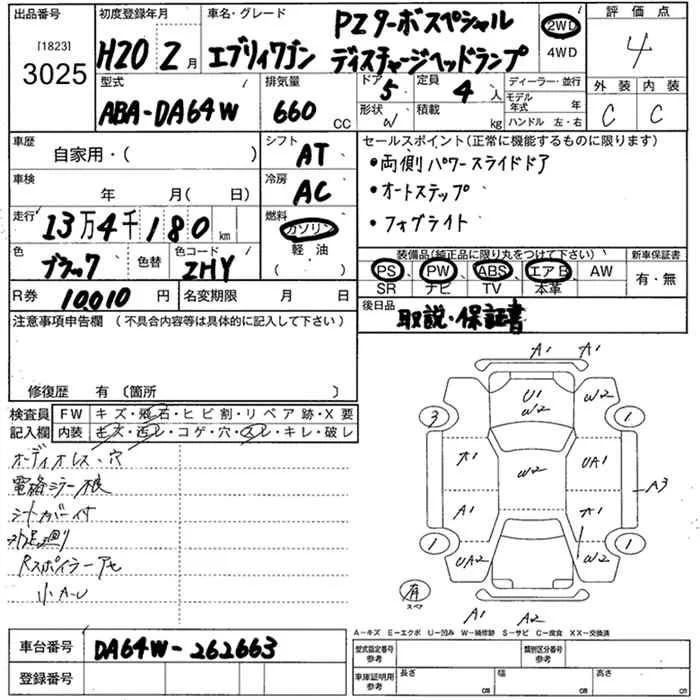 出品番号 初度登録年月 車名・グレード 評価点
[1823] 3025
H20 2月
エブリィワゴン PZターボスペシャル
ディスチャージヘッドランプ
2WD
4WD
4
型式 排気量 ドア 定員 ディーラー・並行 外装 内装
ABA-DA64W 660 CC 5 4人
形状 W 積載 kg
モデル年式 年
ハンドル 左・右
C C
車歴 シフト セールスポイント(正常に機能するものに限ります)
自家用・( ) AT
・両側パワースライドドア
車検 年 月( 日) 冷房 AC
・オートステップ
走行 13万4千180km 燃料 ガソリン
・フォグライト
軽油
( )
色 ブラック 色替 色コード ZHY
装備品(純正品に限り丸をつけて下さい) 新車保証書
PS、PW、ABS、エアB、AW 有・無
SR ナビ TV 本革
R券 10010円 名変期限 月 日
後日品 取説・保証書
注意事項申告欄 (不具合内容等は具体的に記入して下さい)
修復歴 有 〔箇所 〕
検査員 FW キズ・飛石・ヒビ割・リペア跡・X要
記入欄 内装 キズ・汚レ・コゲ・穴・スレ・キレ・破レ
オーディオレス、穴
シートカバー付
Rスポイラーアセ
小A・U
A1 A1
U1
W2 W2
3 1
A1 W2 UA1
A3
A1 A1
1 1
UA2 W2
有
スペア
A1 A2
A−キズ E−エクボ U−凹み W−補修跡 S−サビ C−腐食 XX−交換済
車台番号 DA64W-262663
登録番号
型式指定番号 参考 類別区分番号 参考
車庫証明用 参考 長さ cm 幅 cm 高さ cm